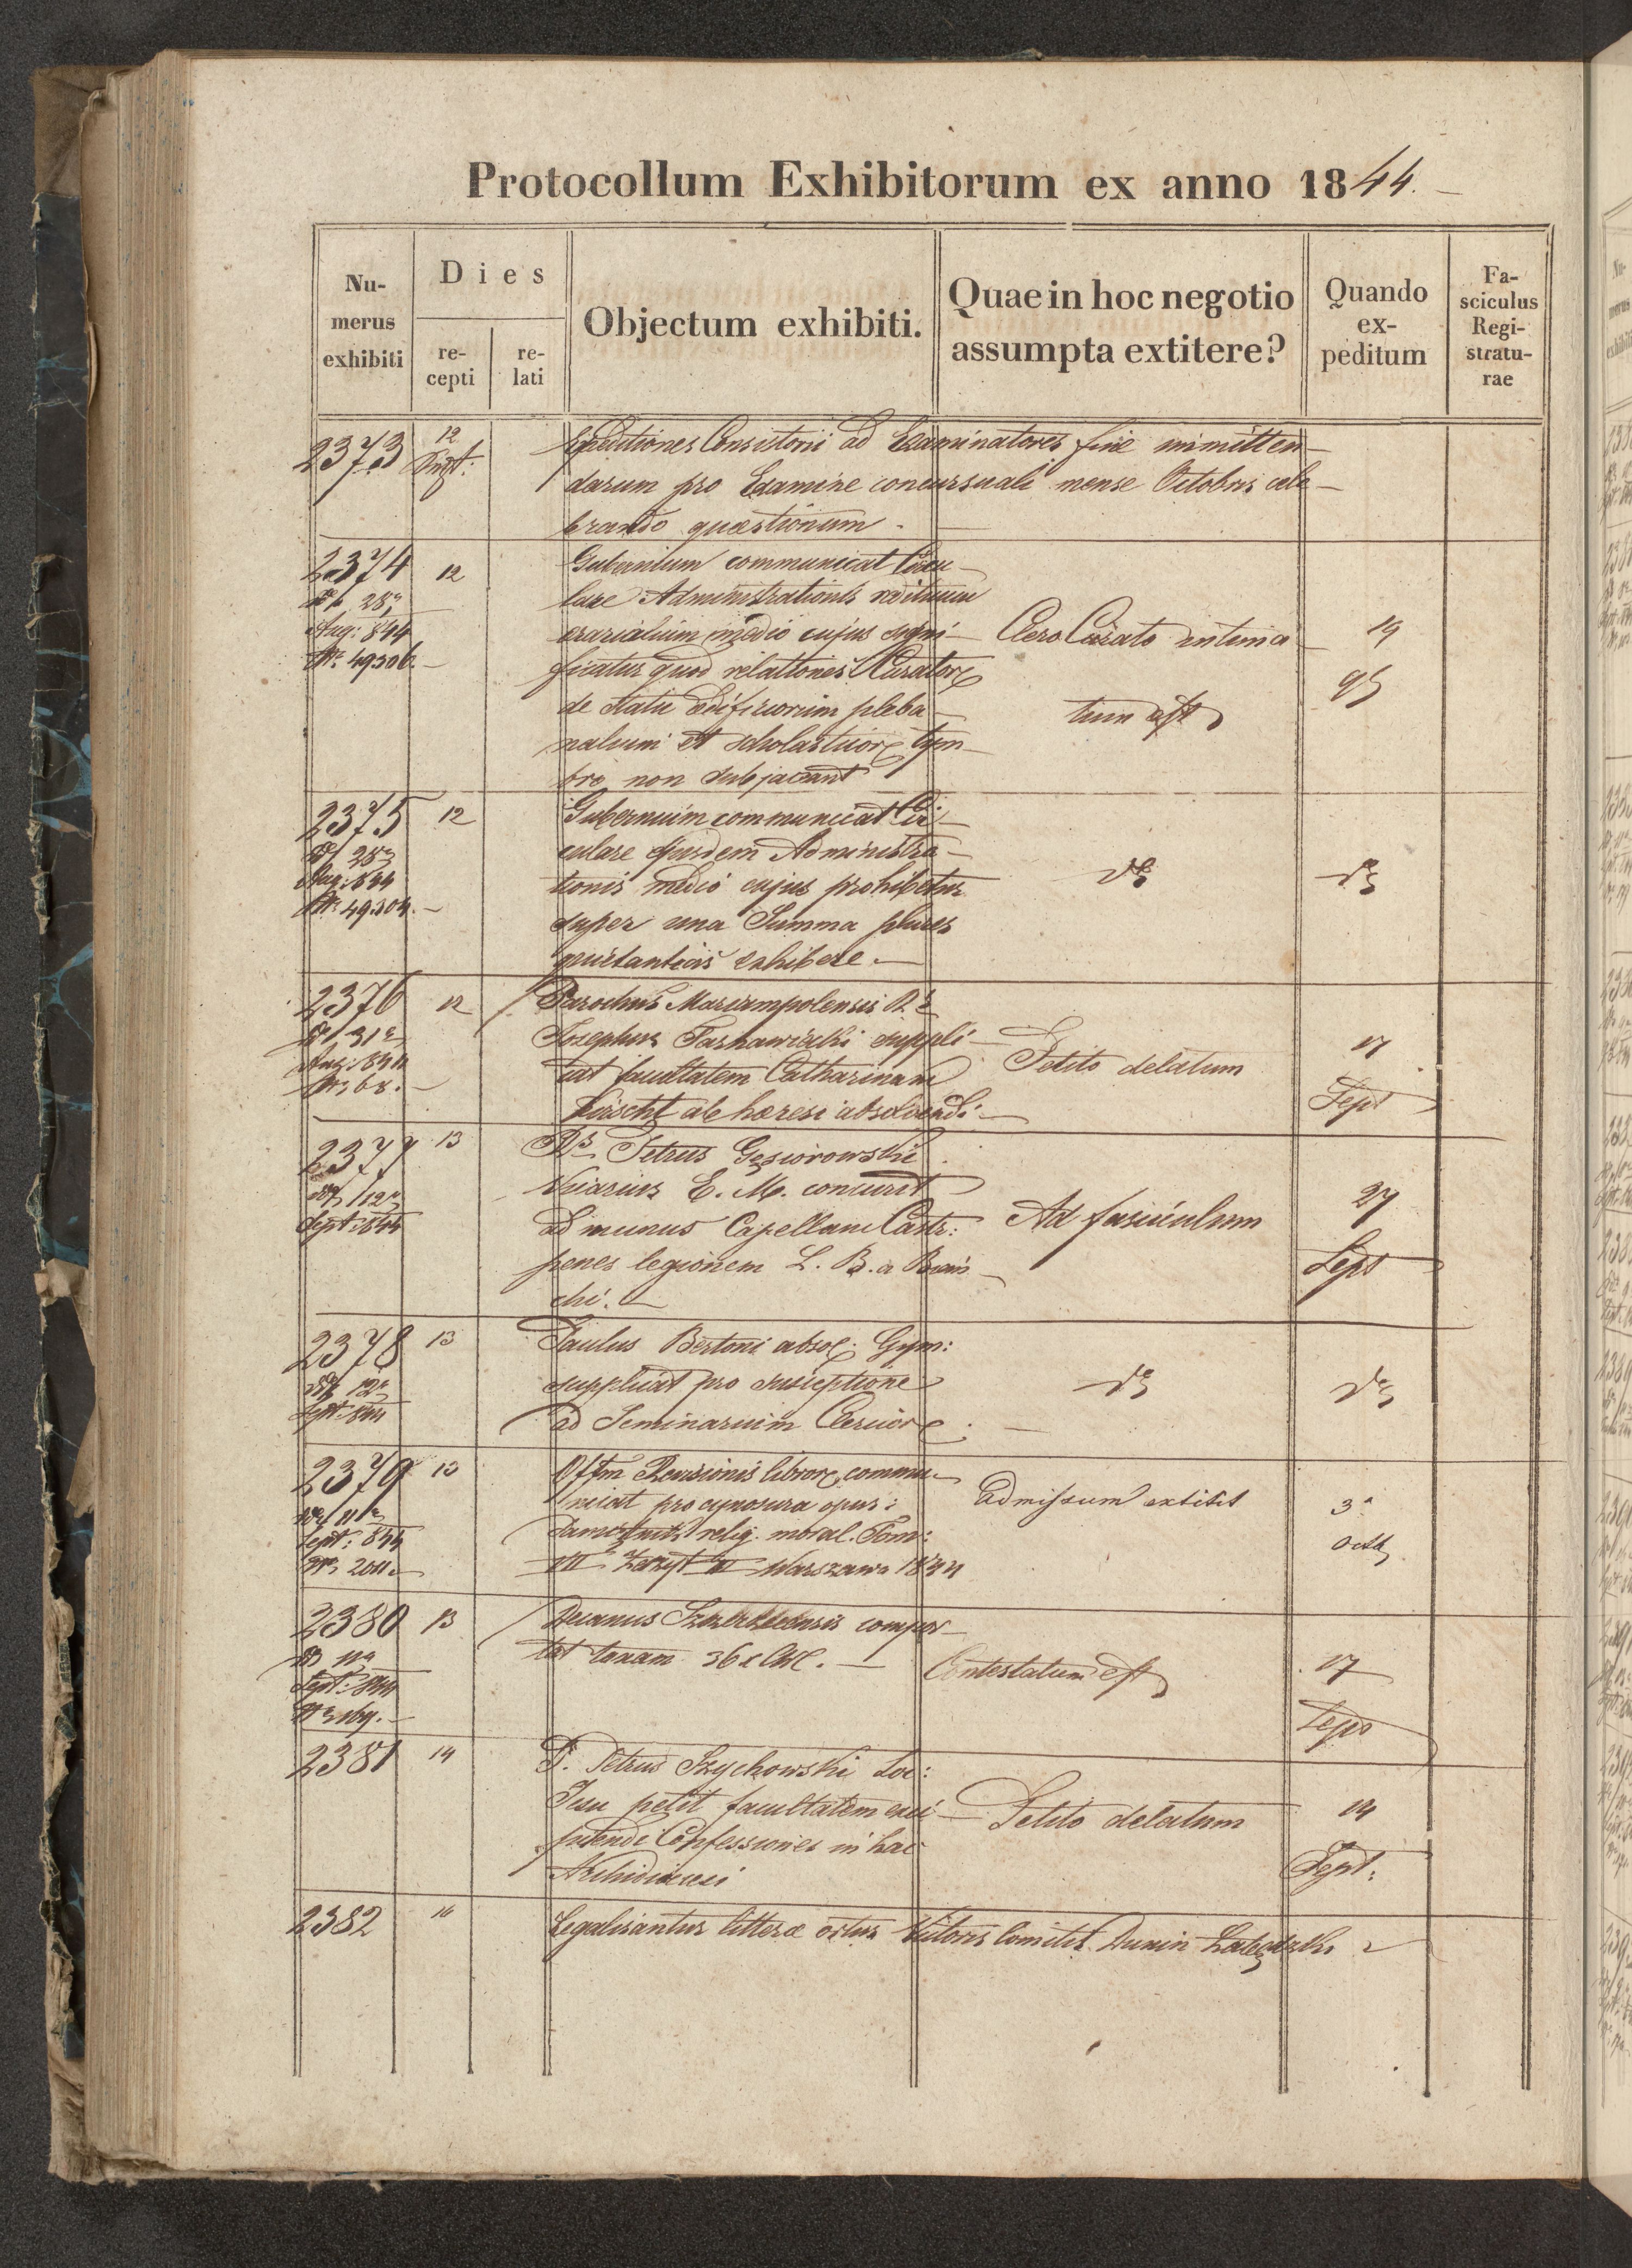 Protocollum Exhibitorum ex anno 1844.
Nu-
merus
exhibiti
Dies
re-
cepti
re-
lati
Objectum exhibiti.
Quae in hoc negotio
assumpta extitere?
Quando
ex-
peditum
Fa-
sciculus
Regi-
stratu-
rae
2373
12
Sept:
Expeditiones Consistorii ad Examinatores fine immitten-
darum pro Examine concursuali mense Octobris cele-
brando quaestionum.
2374
12
28
Aug: 844
Nr 49306
Gubernium communicat Circu-
lare Administrationis redituum
erarialium medio cujus signi-
ficatur quod relationes Curatore
de statu Edificiorum pleba-
nalium et scholasticore tym-
bro non subjaceant
Clero Curato intima-
tum est
19
2375
12
28
Aug: 844
Nr 49304.
Gubernium communicat Cir-
culare ejusdem Administra-
tionis medio cujus prohibetur
super una Summa plures
quietantias exhibere.
2376
12
31
Aug: 844
Nr 68.
Parochus Mariampolensis
Josephus Tarnawiecki suppli-
cat facultatem Catharinam
ab haeresi absolvendi
Petito delatum
17
Sept
2377
13
12
Sept: 844
Petrus Gęsiorowski
Vicarius E. M. concurrit
ad munus Capellani Castr:
penes legionem L. B. a Bian-
chi.
Ad fasciculum
27
Sept
2378
13
12
Sept: 844
Paulus Bertoni absol: Gym:
supplicat pro susceptione
ad Seminarium Clericor
2379
13
11
Sept: 844
Nr 2011.
Offm Revisionis libror commu-
nicat pro cynosura opus:
Pamiętnik relig. moral. Tom:
VII Zeszyt III Warszawa 1844
admissum extitit
3
Octb
2380
13
11
Sept: 844
Nr 169.
Decanus Szczerzecensis compor-
tat taxam 36 x CM.
Contestatum est
17
Sept
2381
14
P. Petrus Szychowski Soc:
Jesu petit facultatem exci-
piendi Confessiones in hac
Archidiaecesi
Petito delatum
14
Sept:
2382
16
Legalisantur litterae ortus Victoris Comitis Dunin